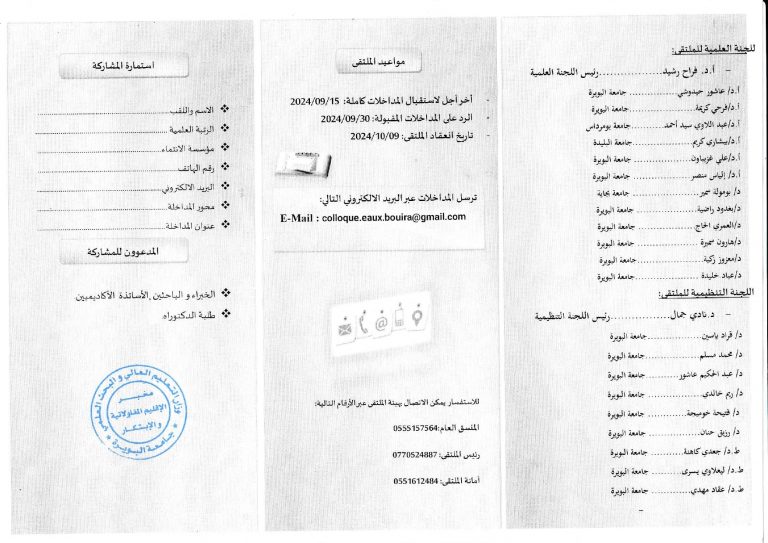 اللجنة العلمية للملتقى:
– أ.د. فراح رشيد................رئيس اللجنة العلمية
أ.د/ عاشور حيدوشي ............. جامعة البويرة
أ.د/فرحي كريمة................. جامعة البويرة
أ.د/عبد اللاوي سيد أحمد........... جامعة بومرداس
أ.د/بيشاري كريم................. جامعة البليدة
أ.د/علي عزيباون................ جامعة البويرة
أ.د/ إلياس منصر................ جامعة البويرة
د/ بومولة سمير.................. جامعة بجاية
د/بغدود راضية................... جامعة البويرة
د/العمري الحاج.................. جامعة البويرة
د/هارون سميرة.................. جامعة البويرة
د/معزوز زكية................... جامعة البويرة
د/عباد خليدة.................... جامعة البويرة
اللجنة التنظيمية للملتقى:
– د.نادي جمال...............رئيس اللجنة التنظيمية
د/ قراد ياسين................جامعة البويرة
د/ محمد مسلم................جامعة البويرة
د/ عبد الحكيم عاشور.......... جامعة البويرة
د/ ريم خالدي................ جامعة البويرة
د/ فتيحة خوميجة............. جامعة البويرة
د/ رزيق حنان................. جامعة البويرة
ط.د/ جعدي كاهنة............ جامعة البويرة
ط.د/ ليعلاوي يسرى.......... جامعة البويرة
ط.د/ عقاد مهدي............. جامعة البويرة
مواعيد الملتقى
- آخر أجل لاستقبال المداخلات كاملة: 2024/09/15
- الرد على المداخلات المقبولة: 2024/09/30
- تاريخ انعقاد الملتقى: 2024/10/09
ترسل المداخلات عبر البريد الالكتروني التالي:
E-Mail : colloque.eaux.bouira@gmail.com
للاستفسار يمكن الاتصال بهيئة الملتقى عبر الأرقام التالية:
المنسق العام: 0555157564
رئيس الملتقى: 0770524887
أمانة الملتقى: 0551612484
استمارة المشاركة
❖ الاسم واللقب........................
❖ الرتبة العلمية........................
❖ مؤسسة الانتماء........................
❖ رقم الهاتف........................
❖ البريد الالكتروني........................
❖ محور المداخلة........................
❖ عنوان المداخلة........................
المدعوون للمشاركة
❖ الخبراء و الباحثين ,الأساتذة الأكاديميين
❖ طلبة الدكتوراه.
وزارة التعليم العالي و البحث العلمي
مخبر
الإقليم المقاولاتية
و الإبتكار
جامعة البويرة